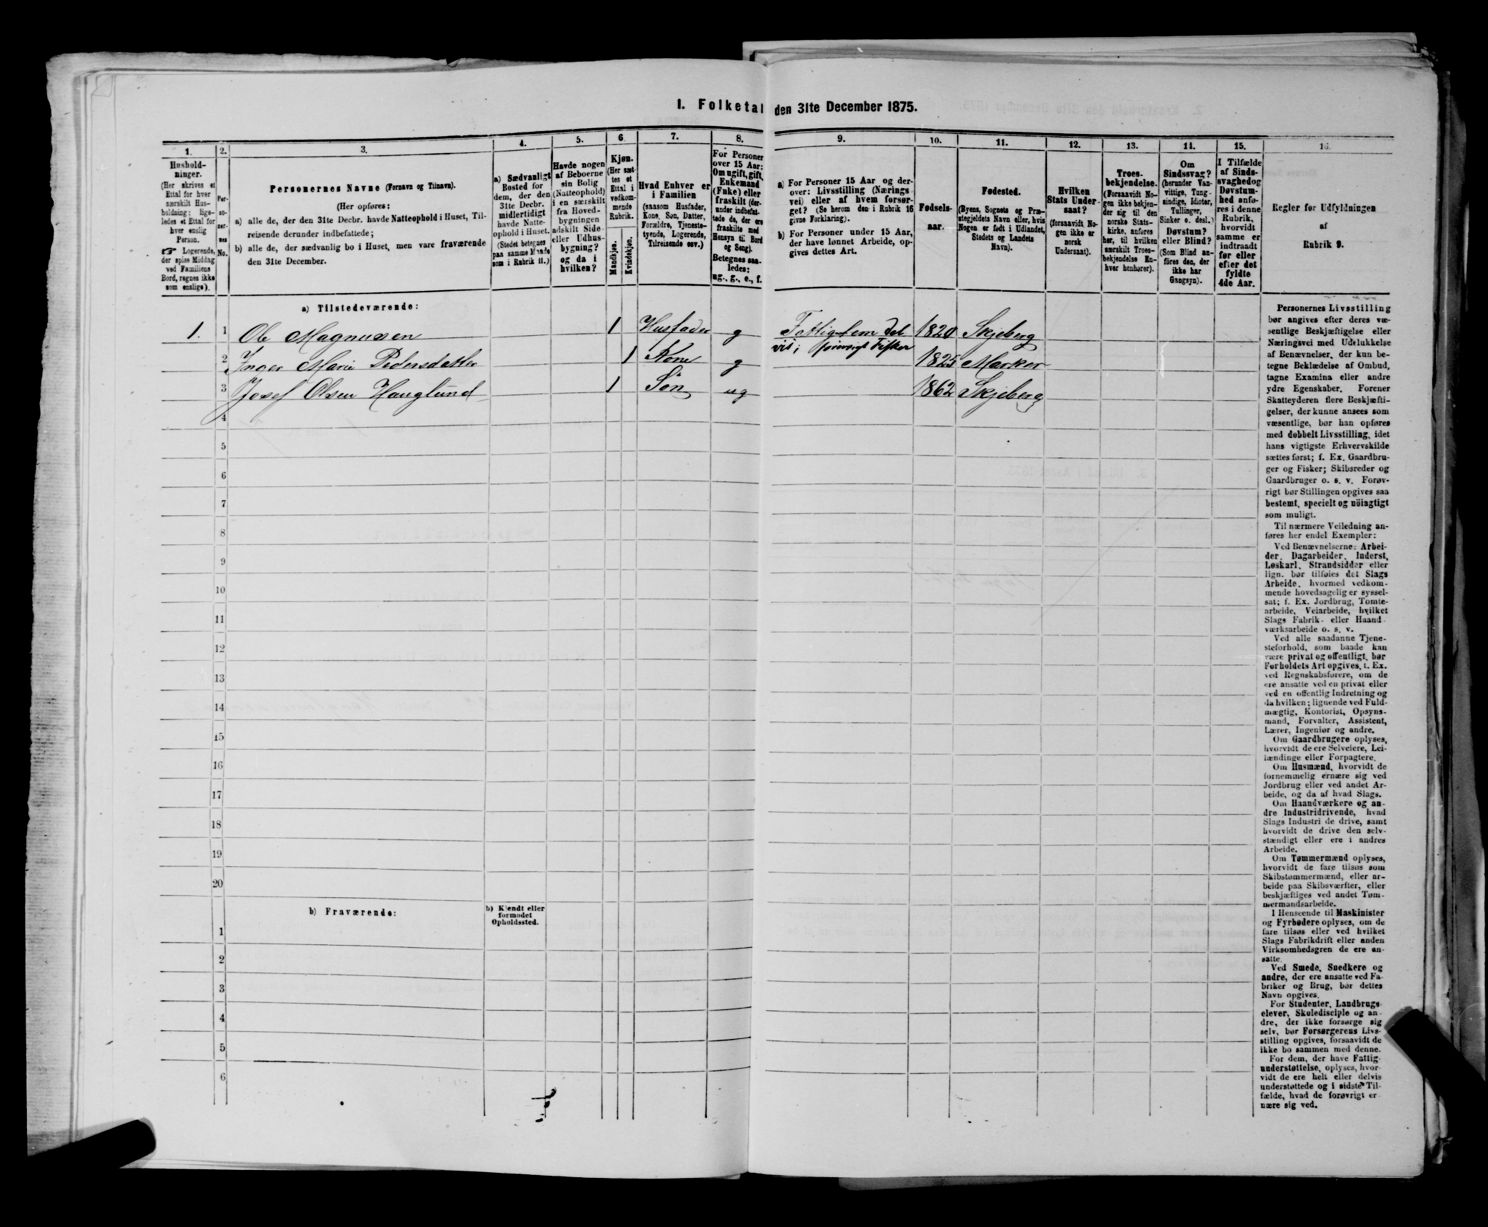 I. Folketal den 31te December 1875.
1.
2.
3.
4.
5.
6.
7.
8.
9.
10.
11.
12.
13.
14.
15.
16.
Hushold-
ninger.
(Her skrives et
Ettal for hver
særskilt Hus-
holdning; lige-
ledes et Ettal for
hver enslig
Person.
☞ Logerende,
der spise Middag
ved Familiens
Bord, regnes ikke
som enslige).
Per-
so-
ner-
nes
No.
Personernes Navne (Fornavn og Tilnavn).
(Her opføres:
a) alle de, der den 31te Decbr. havde Natteophold i Huset, Til-
reisende derunder indbefattede;
b) alle de, der sædvanlig bo i Huset, men vare fraværende
den 31te December.
a) Sædvanligt
Bosted for
dem, der den
31te Decbr.
midlertidigt
havde Natte-
ophold i Huset.
(Stedet betegnes
paa samme Maade
som i Rubrik 11.)
Havde nogen
af Beboerne
sin Bolig
(Natteophold)
i en særskilt
fra Hoved-
bygningen
adskilt Side-
eller Udhus-
bygning?
og da i
hvilken?
Kjøn.
(Her sæt-
tes et
Ettal i
vedkom-
mende
Rubrik.
Mandkjøn.
Kvindekjøn.
Hvad Enhver er
i Familien
(saasom Husfader,
Kone, Søn, Datter,
Forældre, Tjeneste-
tyende, Logerende,
Tilreisende osv.)
For Personer
over 15 Aar:
Om ugift, gift,
Enkemand
(Enke) eller
fraskilt (der-
under indbefat-
tede de, der ere
fraskilte med
Hensyn til Bord
og Seng).
Betegnes saa-
ledes:
ug., g., e., f.
a) For Personer 15 Aar og der-
over: Livsstilling (Nærings-
vei) eller af hvem forsør-
get? (Se herom den i Rubrik 16
givne Forklaring).
b) For Personer under 15 Aar,
der have lønnet Arbeide, op-
gives dettes Art.
Fødsels-
aar.
Fødested.
(Byens, Sognets og Præ-
stegjeldets Navn eller, hvis
Nogen er født i Udlandet,
Stedets og Landets
Navn).
Hvilken
Stats Under-
saat?
(forsaavidt No-
gen ikke er
norsk
Undersaat).
Troes-
bekjendelse.
(Forsaavidt No-
gen ikke bekjen-
der sig til den
norske Stats-
kirke, anføres
her, til hvilken
særskilt Troes-
bekjendelse En-
hver henhører).
Om
Sindssvag?
(herunder Van-
vittige, Tung-
sindige, Idioter,
Tullinger,
Sinker o. desl.)
Døvstum?
eller Blind?
(Som Blind an-
føres den, der
ikke har
Gangsyn).
I Tilfælde
af Sinds-
svaghed og
Døvstum-
hed anfø-
res i denne
Rubrik,
hvorvidt
samme er
indtraadt
før eller
efter det
fyldte
4de Aar.
Regler for Udfyldningen
af
Rubrik 9.
a) Tilstedeværende:
1. 1 Ole Magnussen 1 Husfader g Fattiglem del 1820 Skjeberg
vis; forøvrigt Fisker
2 Inger Marie Pedersdatter 1 Kone g 1825 Marker
3 Josef Olsen Hauglund 1 Søn ug 1862 Skjeberg
4
5
6
7
8
9
10
11
12
13
14
15
16
17
18
19
20
b) Fraværende:
b) Kjendt eller
formodet
Opholdssted.
1
2
3
4
5
6
Personernes Livsstilling
bør angives efter deres væ-
sentlige Beskjæftigelse eller
Næringsvei med Udelukkelse
af Benævnelser, der kun be-
tegne Beklædelse af Ombud,
tagne Examina eller andre
ydre Egenskaber. Forener
Skatteyderen flere Beskjæfti-
gelser, der kunne ansees som
væsentlige, bør han opføres
med dobbelt Livsstilling, idet
hans vigtigste Erhvervskilde
sættes først; f. Ex. Gaardbru-
ger og Fisker; Skibsreder og
Gaardbruger o. s. v. Forøv-
rigt bør Stillingen opgives saa
bestemt, specielt og nöiagtigt
som muligt.
Til nærmere Veiledning an-
føres her endel Exempler:
Ved Benævnelserne: Arbei-
der, Dagarbeider, Inderst,
Løskarl, Strandsidder eller
lign. bør tilføies det Slags
Arbeide, hvormed vedkom-
mende hovedsagelig er syssel-
sat; f. Ex. Jordbrug, Tomte-
arbeide, Veiarbeide, hvilket
Slags Fabrik- eller Haand-
værksarbeide o. s. v.
Ved alle saadanne Tjene-
steforhold, som baade kan
være privat og offentligt, bør
Forholdets Art opgives, f. Ex.
ved Regnskabsførere, om de
ere ansatte ved en privat eller
ved en offentlig Indretning og
da hvilken; lignende ved Fuld-
mægtig, Kontorist, Opsyns-
mand, Forvalter, Assistent,
Lærer, Ingeniør og andre.
Om Gaardbrugere oplyses,
hvorvidt de ere Selveiere, Lei-
lændinge eller Forpagtere.
Om Husmænd, hvorvidt de
fornemmelig ernære sig ved
Jordbrug eller ved andet Ar-
beide, og da af hvad Slags.
Om Haandværkere og an-
dre Industridrivende, hvad
Slags Industri de drive, samt
hvorvidt de drive den selv-
stændigt eller ere i andres
Arbeide.
Om Tømmermænd oplyses,
hvorvidt de fare tilsøs som
Skibstømmermænd, eller ar-
beide paa Skibsværfter, eller
beskjæftiges ved andet Tøm-
mermandsarbeide.
I Henseende til Maskinister
og Fyrbødere oplyses, om de
fare tilsøs eller ved hvilket
Slags Fabrikdrift eller anden
Virksomhedsgren de ere an-
satte.
Ved Smede, Snedkere og
andre, der ere ansatte ved Fa-
briker og Brug, bør dettes
Navn opgives.
For Studenter, Landbrugs-
elever, Skoledisciple og an-
dre, der ikke forsørge sig
selv, bør Forsørgerens Livs-
stilling opgives, forsaavidt de
ikke bo sammen med denne.
For dem, der have Fattig-
understøttelse, oplyses, hvor-
vidt de ere helt eller delvis
understøttede og i sidste Til-
fælde, hvad de forøvrigt er-
nære sig ved.